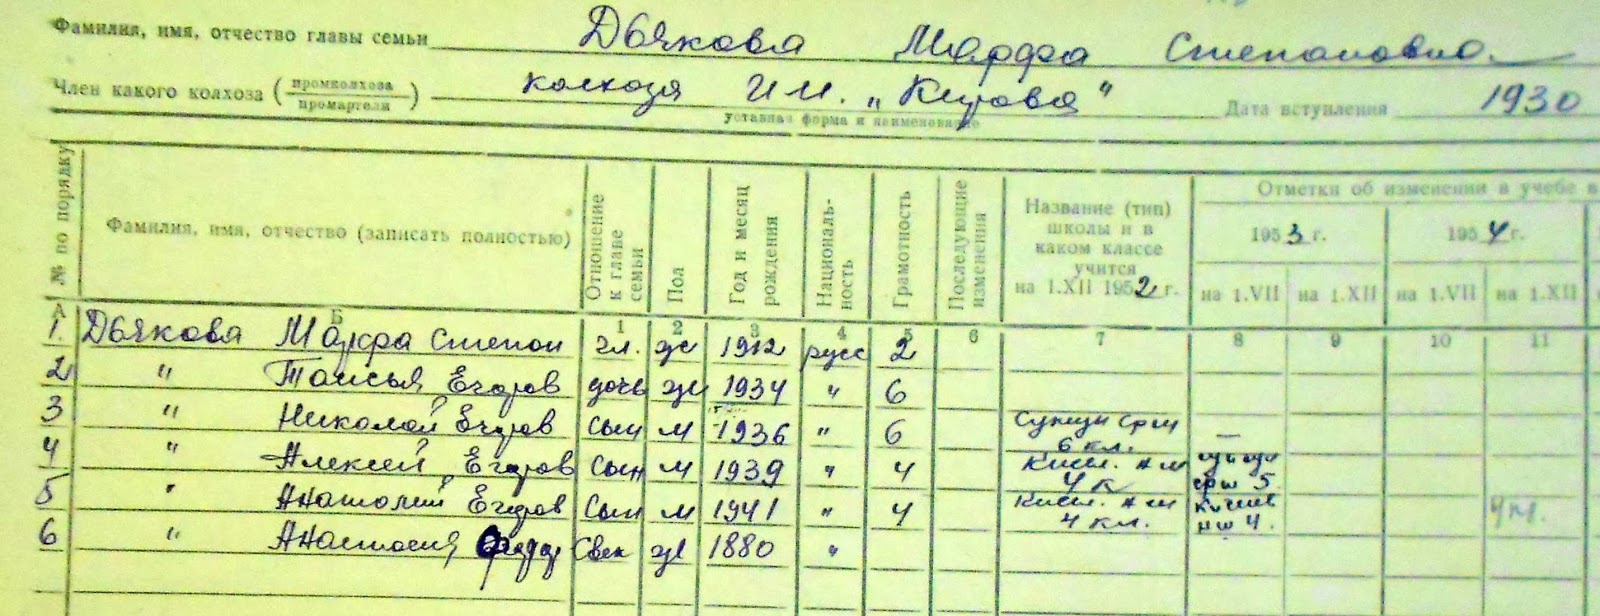 Фамилия, имя, отчество главы семьи Дьякова Марфа Степановна
Член какого колхоза (промколхоза промартели) колхоза им. „Кирова" Дата вступления 1930
уставная форма и наименование
№ по порядку Фамилия, имя, отчество (записать полностью) Отношение к главе семьи Пол Год и месяц рождения Националь-ность Грамотность Последующие изменения Название (тип) школы и в каком классе учится на 1.XII 1952 г. Отметки об изменении в учебе в
1953 г. 1954 г.
на 1.VII на 1.XII на 1.VII на 1.XII
А Б 1 2 3 4 5 6 7 8 9 10 11
1. Дьякова Марфа Степан гл. ж 1912 русс 2
2 " Таисья Егоров дочь ж 1934 " 6
3 " Николай Егоров сын м 1936 " 6 6 кл. —
4 " Алексей Егоров сын м 1939 " 4 4 к 5.
5 " Анатолий Егоров сын м 1941 " 4 4 кл. нш 4. 4 кл.
6 " Анастасия свек ж 1880 "